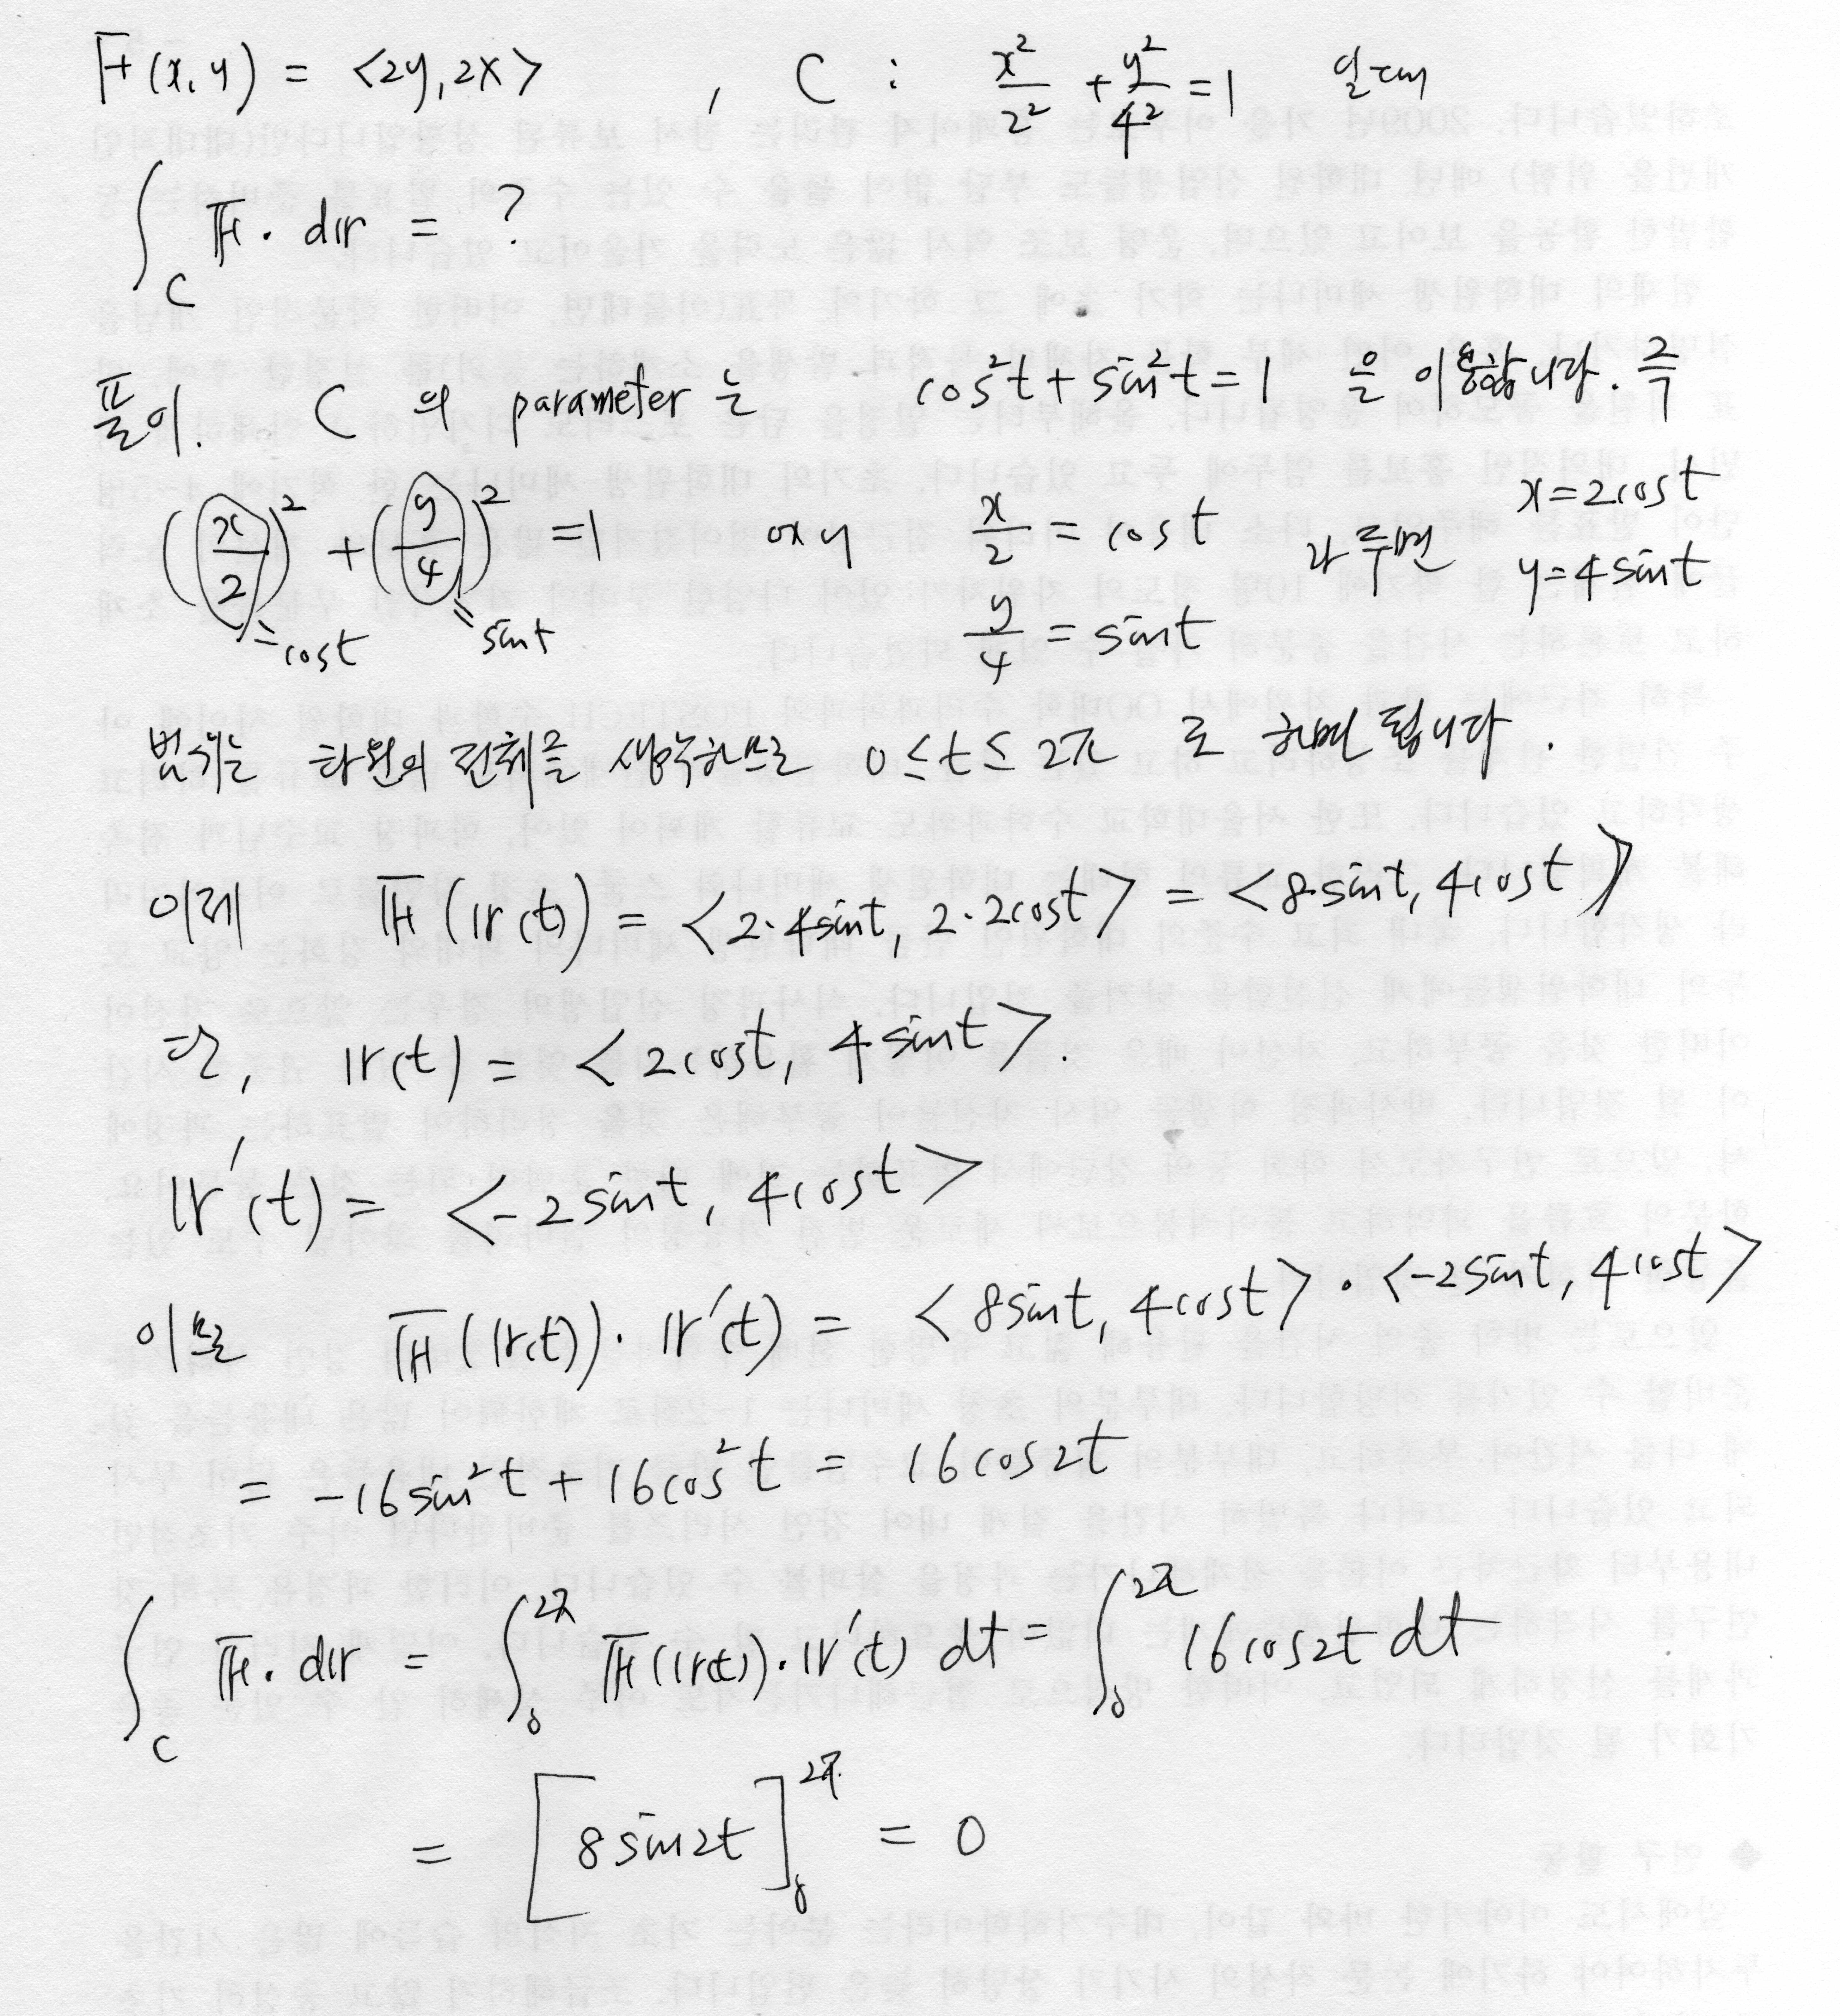 F(x, y) = <2y, 2x> , C : x²/2² + y²/4² = 1 일때
∫_C F · dr = ?
풀이. C 의 parameter 는 cos²t + sin²t = 1 을 이용합니다. 즉
(x/2)² + (y/4)² = 1 에서 x/2 = cos t 라 두면 x = 2cos t
= cos t = sin t y/4 = sin t y = 4 sin t
범위는 타원의 전체를 생각하므로 0 ≤ t ≤ 2π 로 하면 됩니다.
이제 F(r(t)) = <2·4sin t, 2·2cos t> = <8 sin t, 4cos t>
또, r(t) = <2cos t, 4 sin t>.
r'(t) = <-2 sin t, 4cos t>
이므로 F(r(t)) · r'(t) = <8sin t, 4cos t> · <-2sin t, 4cos t>
= -16 sin²t + 16cos²t = 16 cos 2t
∫_C F · dr = ∫_0^{2π} F(r(t)) · r'(t) dt = ∫_0^{2π} 16 cos 2t dt
= [8 sin 2t]_0^{2π} = 0